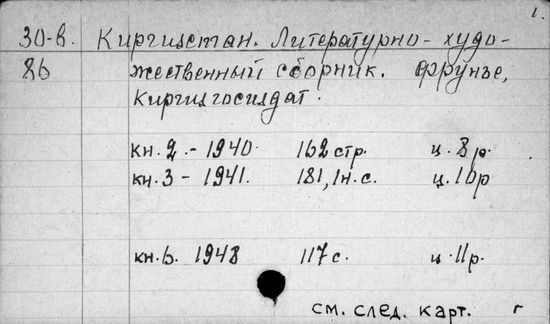 1.
30-в. Киргизстан. Литературно-худо-
86 жественный сборник. Фрунзе,
Киргизгосиздат.
кн. 2. - 1940. 162 стр. ц. 8 р.
кн. 3 - 1941. 181, 1 н. с. ц. 10 р
кн. 6. 1948 117 с. ц. 11 р.
см. след. карт. г